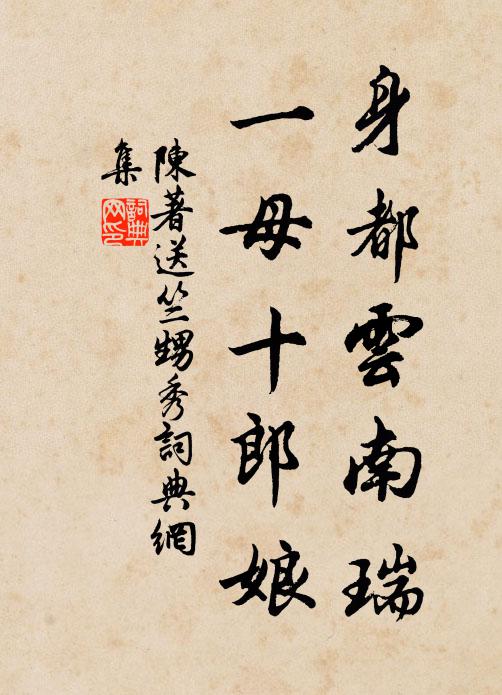 身都雲南瑞
一母十郎娘
陳著送竺甥秀詞典網
集
詞典
网印